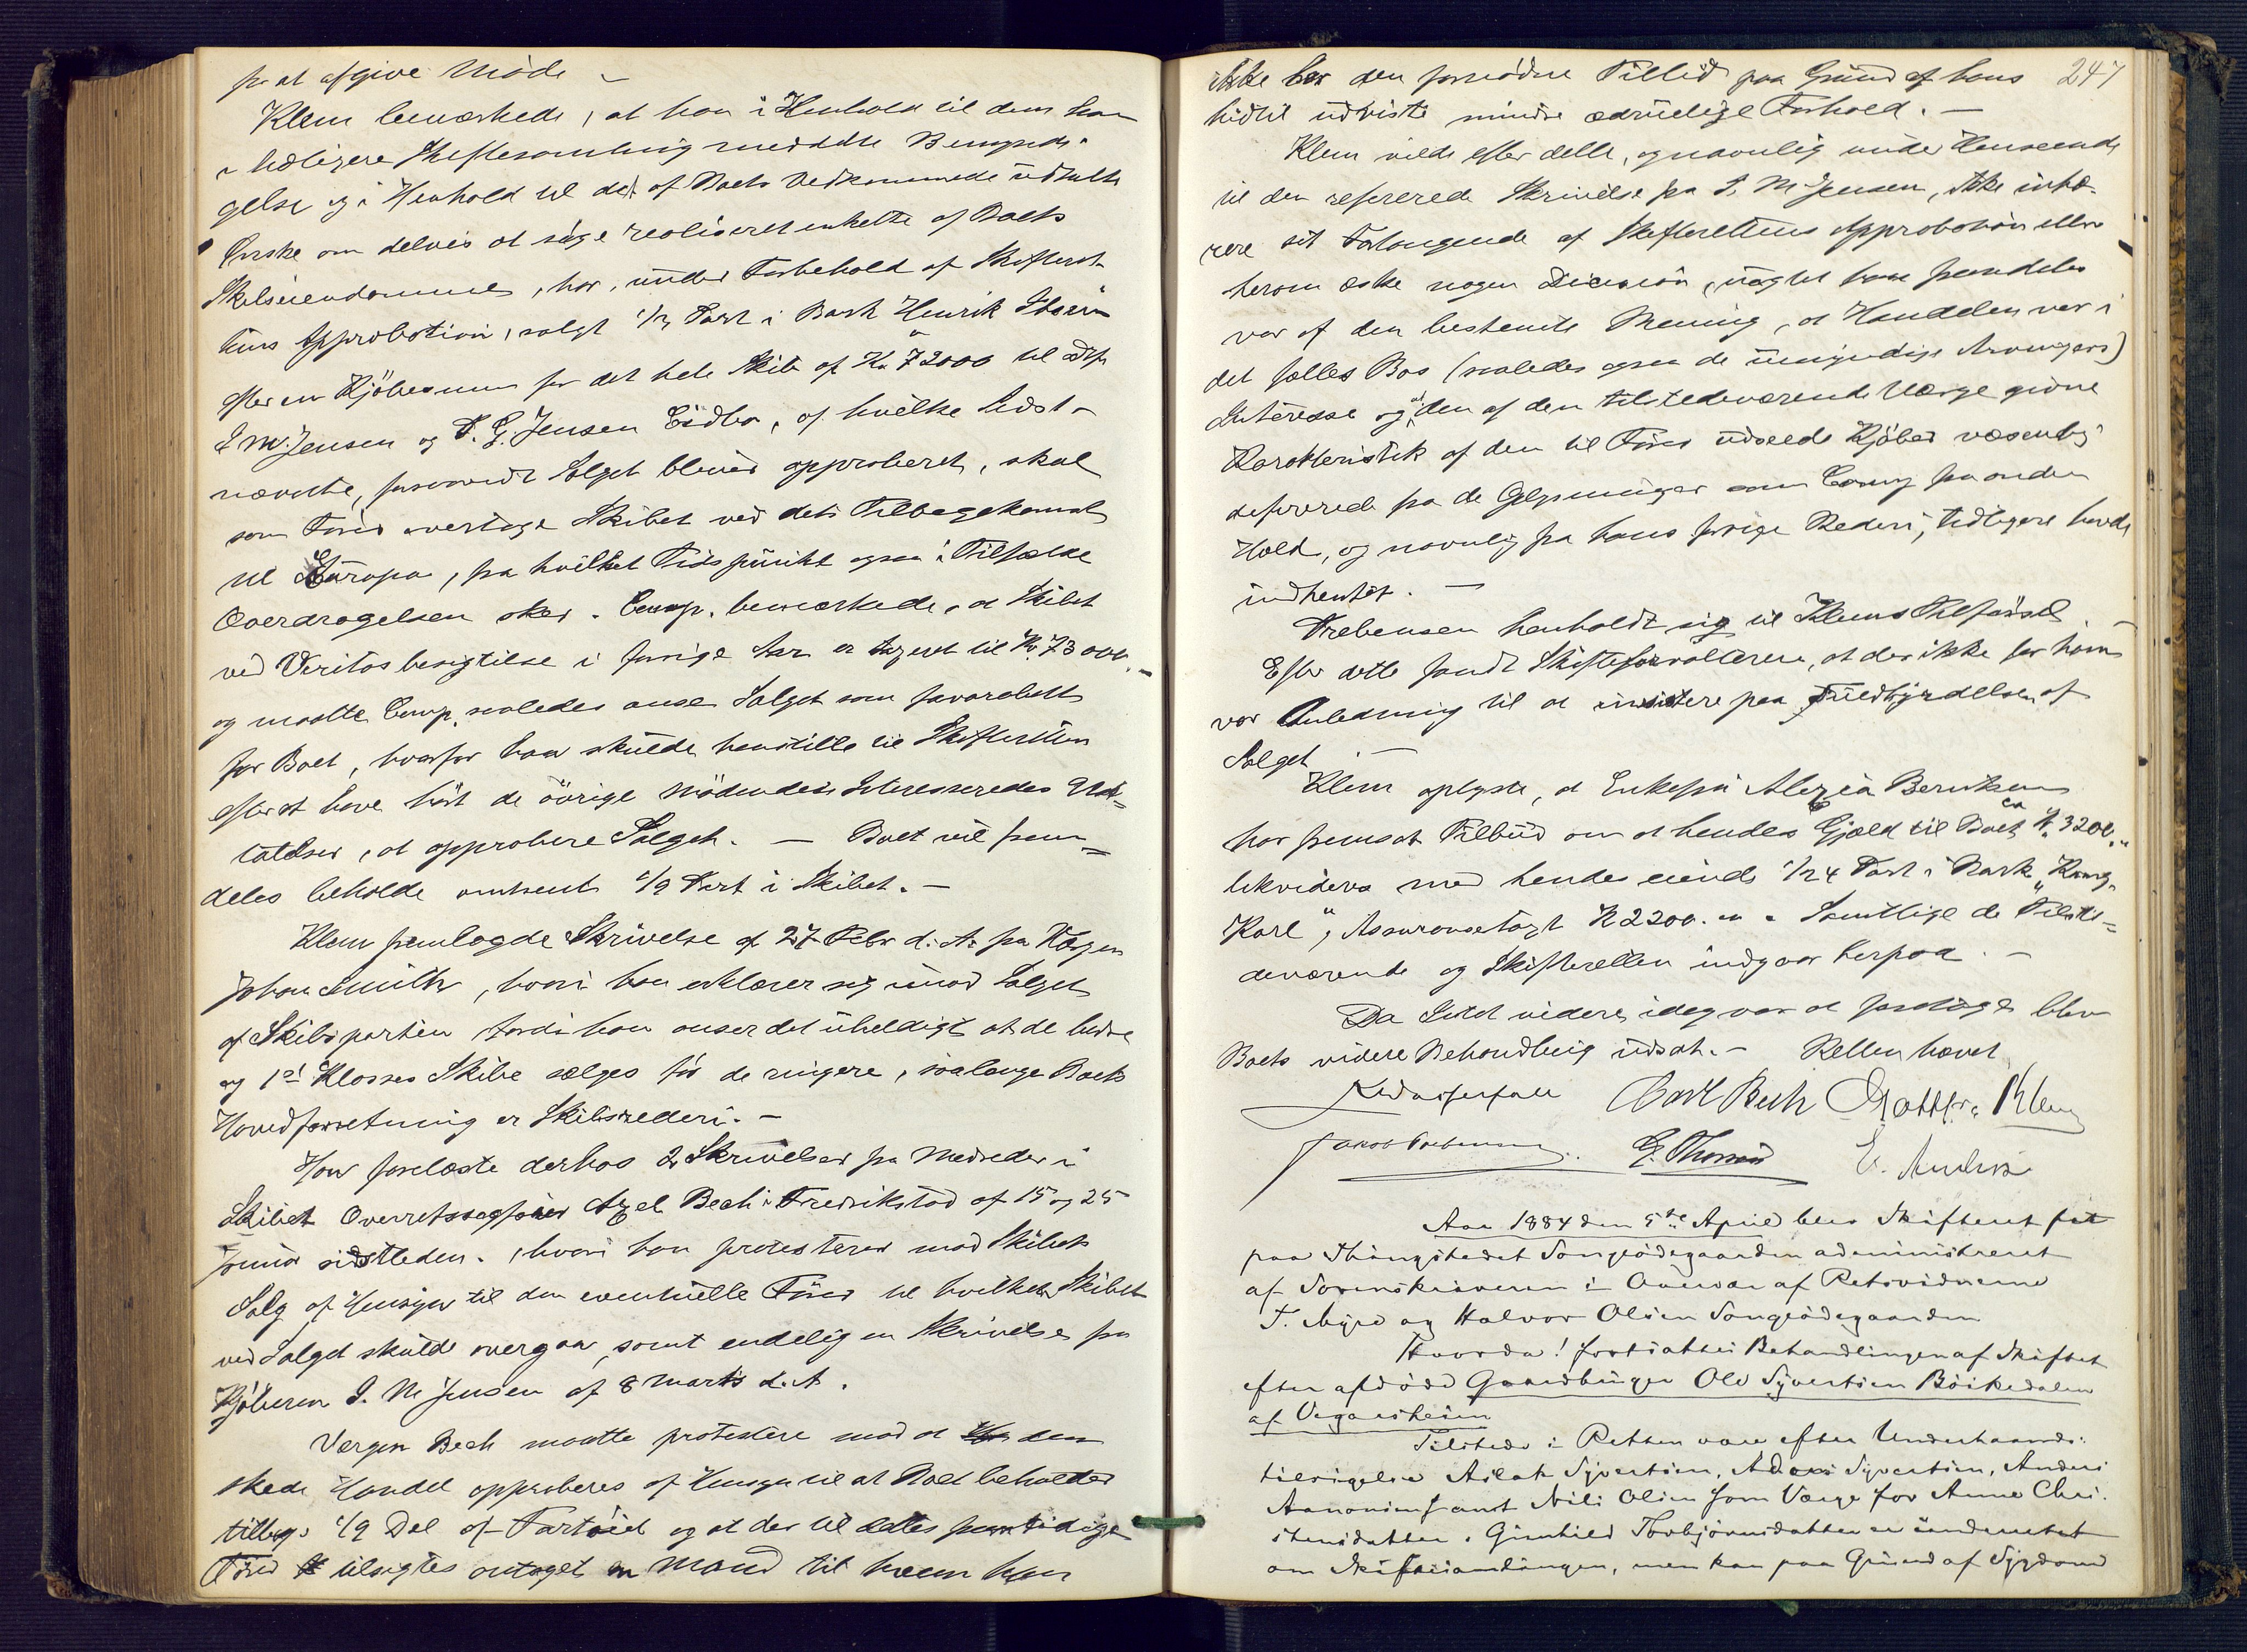 fra at afgive Møde –
Klem bemærkede, at han i Henhold til dem han
i tidligere Skiftesamling meddelte Bemyndi-
gelse og i Henhold til det af Boets Vedkommende udtalte
Ønske om delvis at søge realiseret enkelte af Boets
Skibseiendomme, har, under Forbehold af Skifteret-
tens Approbation, solgt Part i Bark Henrik Ibsen
efter en Kjøbesum for det hele Skib af Kr 72000 til
J. M. Jensen og T. G. Jensen Eidbo, af hvilke sidst-
nævnte, forsaavidt Salget bliver approberet, skal
som Fører overtage Skibet ved dets Tilbagekomst
til Europa, fra hvilket Tidspunkt ogsaa i Tilfælde
Overdragelsen sker. Comp. bemærkede, at Skibet
ved Veritas besigtilse i forrige Aar er taxeret til Kr. 73000.–
og maatte Comp. saaledes anse Salget som favorabelt
for Boet, hvorfor han skulde henstille til Skifteretten
efter at have hørt de øvrige mødendes Interesseredes Ud-
talelser, at approbere Salget. – Boet vil frem-
deles beholde omtrent 1/9 Part i Skibet. –
Klem fremlagde Skrivelse af 27 Febr d. A. fra Værgen
Johan Smith, hvori han erklærer sig imod Salget
af Skibsparten fordi han anser det uheldigt at de bedre
og 1st Klasses Skibe sælges før de ringere, saalænge Boets
Hovedforretning er Skibsrederi. –
Han forelæste derhos 2 Skrivelser fra Medreder i
Skibet Overretssagfører Axel Bech i Fredrikstad af 15 og 25
Januar sidstleden, hvori han protesterer mod Skibets
Salg af Hensyn til den eventuelle Fører til hvilken Skibet
ved Salget skulde overgaa, samt endelig en Skrivelse fra
Kjøberen J. M. Jensen af 8 Marts d. A.
Værgen Bech maatte protestere mod at den
skede Handel approberes af Hensyn til at Boet beholder
tilbage 1/9 Del af Fartøiet og at der til dettes fremtidige
Fører tilsigtes antaget en Mand til hvem han
ikke har den fornødne Tillid paa Grund af hans 247
hidtil udviste mindre ædruelige Forhold. –
Klem vilde efter dette, og navnlig under Henseende
til den refererede Skrivelse fra J. M. Jensen, ikke inhæ-
rere sit Forlangende af Skifterettens Approbation eller
herom æske nogen Decision, uagtet han fremdeles
var af den bestemte Mening, at Handelen var i
det fælles Bos (saaledes ogsaa de umyndige Arvingers)
Interesse og at den af den tilstedeværende Værge givne
Karakteristik af den til Fører udseede Kjøber væsentlig
defererede fra de Oplysninger som Comp fra anden
Hold, og navnlig fra hans forrige Rederi, tidligere havde
indhentet. –
Prebensen henholdt sig til Klems Tilførsel
Efter dette fandt Skifteforvalteren, at der ikke for ham
var Anledning til at insistere paa Fuldbyrdelsen af
Salget
Klem oplyste, at Enkefru Alexia Berntsen
har fremsat Tilbud om at hendes Gjæld til Boet ca Kr. 3200.–
likvideres med hendes eiende 1/24 Part i Bark „Kong
Karl“, Assurancetaxt Kr 2200. Samtlige de Tilste-
deværende og Skifteretten indgaar herpaa. –
Da Intet videre idag var at foretage blev
Boets videre Behandling udsat. – Retten hævet
Carl Bech Klem
Jakob Prebensen G. Thorsen
Aar 1884 den 5te April blev Skifteret sat
paa Thingstedet Songeødegaarden administreret
af Sorenskriveren i Overvær af Retsvidnerne
T. Myre og Halvor Olsen Songeødegaarden
Hvorda! fortsattes Behandlingen af Skiftet
efter afdøde Gaardbruger Ole Syvertsen Bøikedalen
af Vegaardsheien
Tilstede i Retten vare efter Underhaands-
tilsigelse Aslak Syvertsen, Syvertsen, Anders
Aanonsen samt Nils Olsen som Værge for Anne Chri-
stensdatter. Gunhild Torbjørnsdatter er underrettet
om Skiftesamlingen, men kan paa Grund af Sygdom